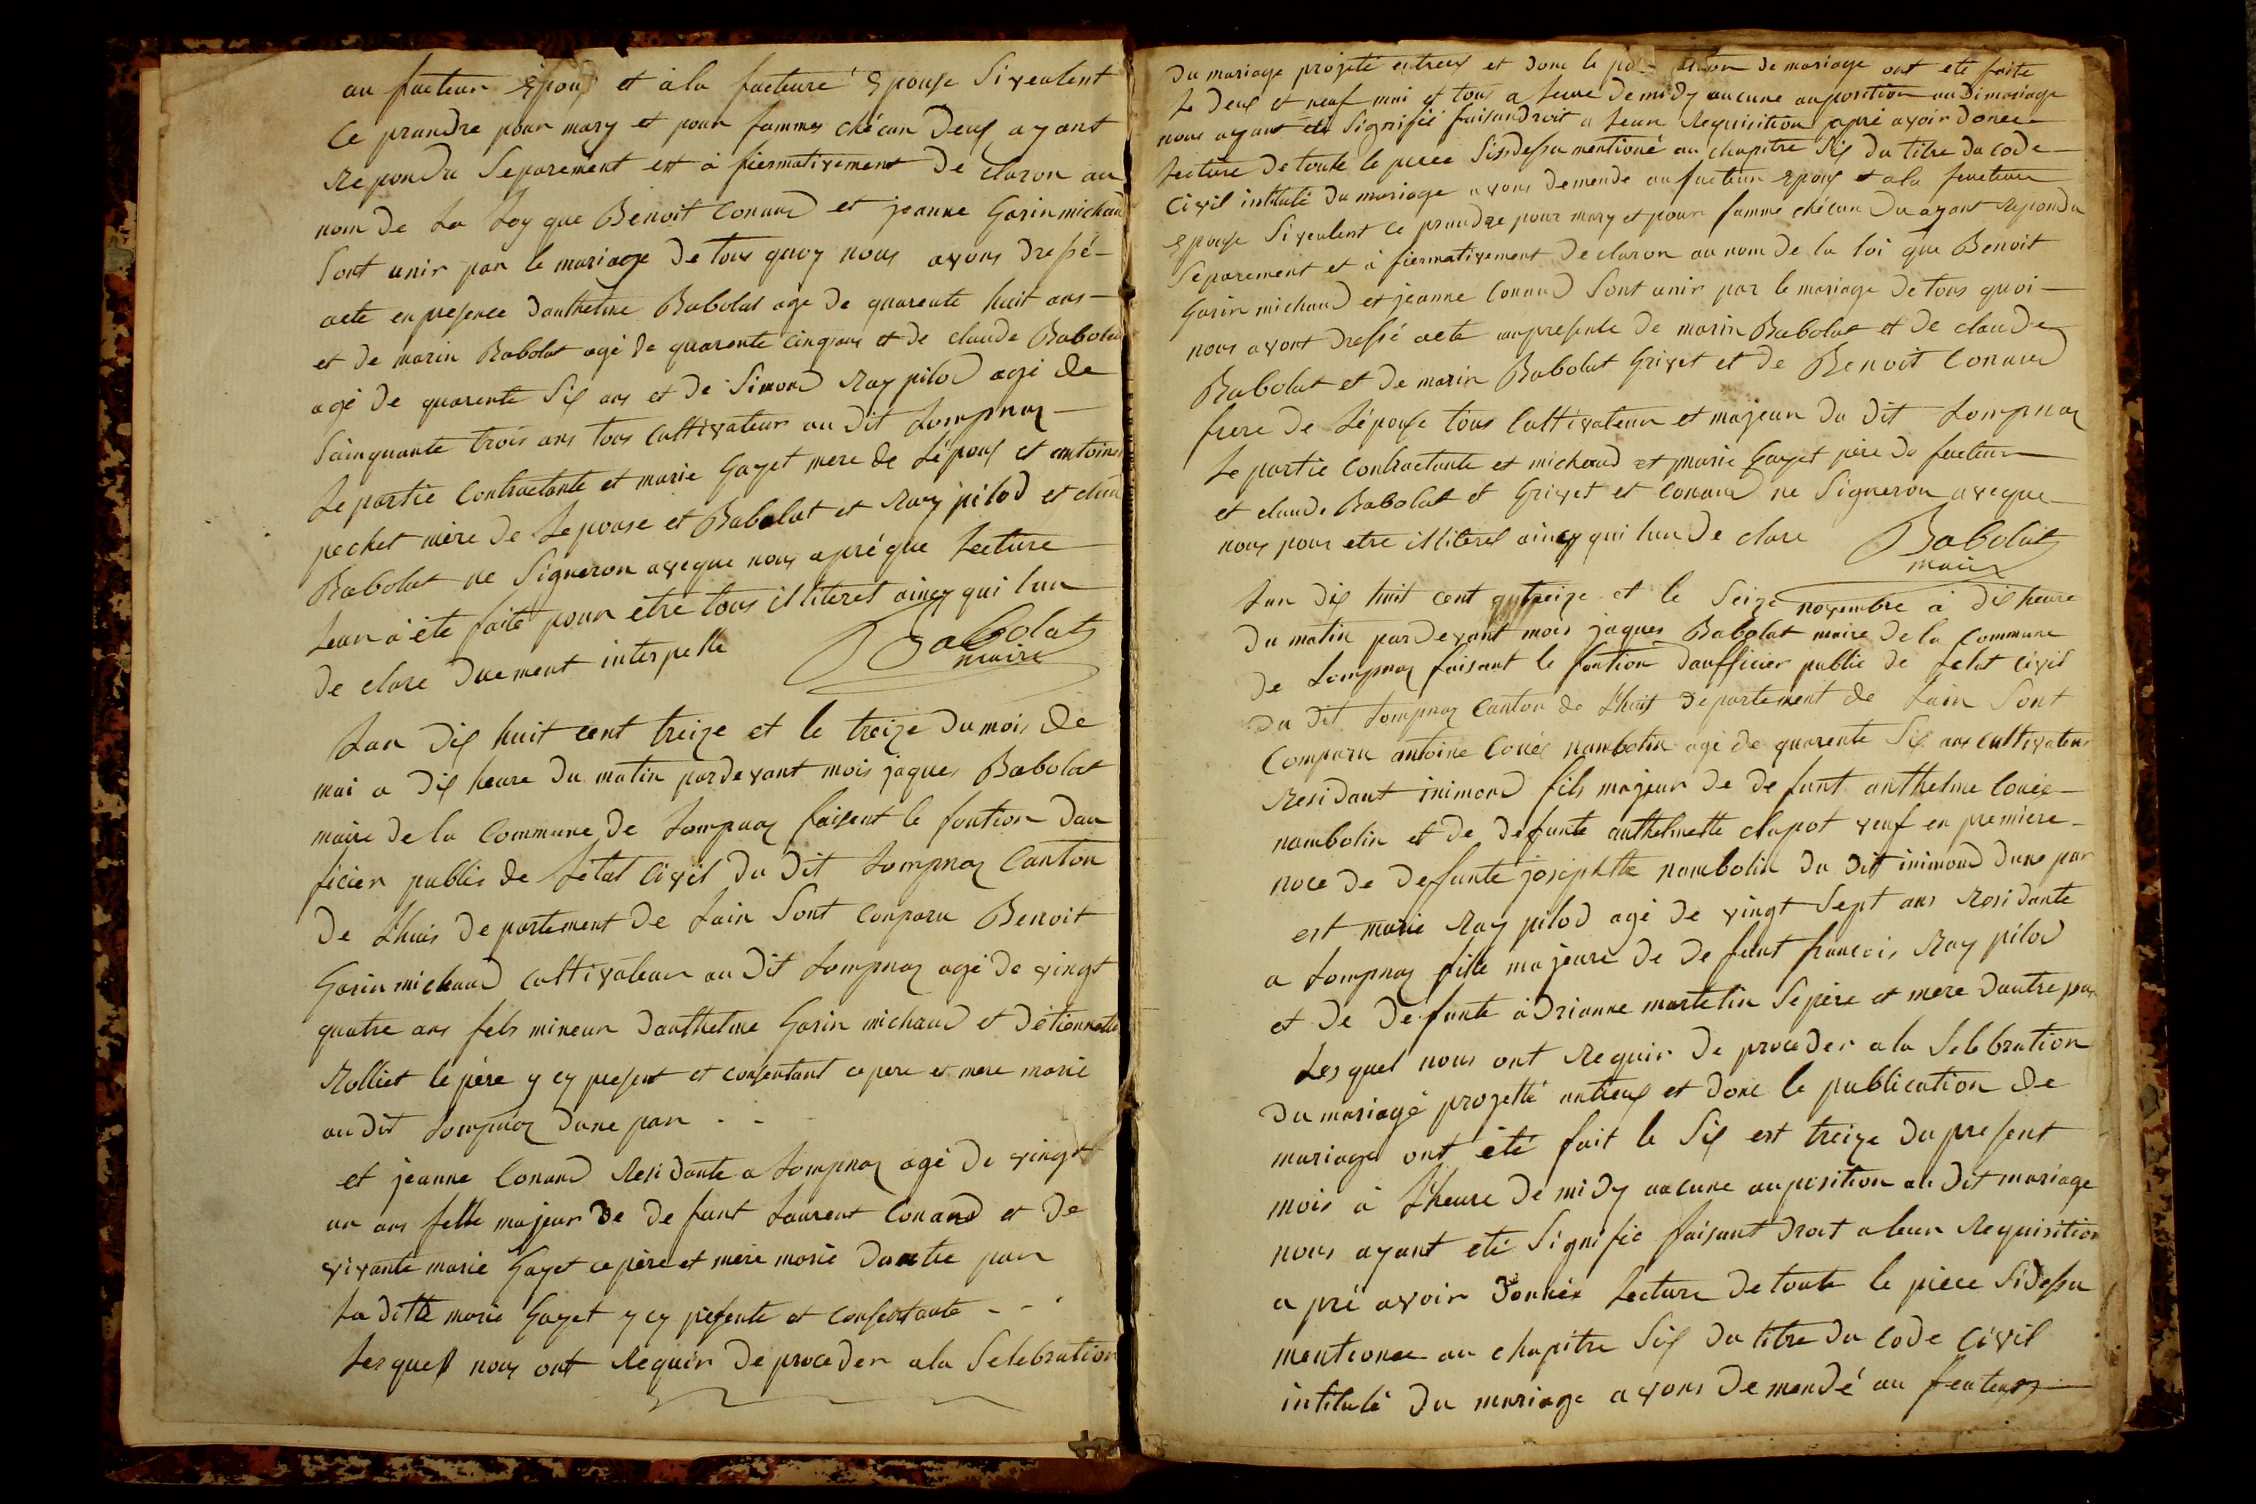 au futeur Epoux et à la futeure Epouse Si veulent
Ce prandre pour mary et pour fammes chécun Deux ayant
Repondu Separement et à fiermativement De claron au
nom de La Loy que Benoit Conand et jeanne Gorin michaud
Sont unir par le mariage De tous quoy nous avons dressé
acte en presence danthelme Babolat age de quarente huit ans
et de marin Babolat agé de quarente Cinq ans et de claude Babolat
agé De quarente Six ans et de Simond Ray pilod agé de
Sainquante trois ans tous Cultivateur au Dit Lompnaz
Le partie Contractante et marie Gayet mere de L'époux et antoine
pechet mère De Lepouse et Babolat et Ray pilod et
Babolat ne Signeron aveque nous apré que Lecture
Leur à éte faite pour etre tous illiteret aincy qui lun
De clare Duement interpelle Babolat
maire
Lan Dix huit cent treize et le treize du mois De
mai a Dix heure Du matin pardevant mois jaques Babolat
maire de la Commune De Lompnaz faisent le fontion Dau
ficier public de Létat Civil Du Dit Lompnaz Canton
De Lhuis Departement De Lain Sont Conparu Benoit
Gorin michaud Cultivateur au Dit Lompnaz agé de vingt
quatre ans fels mineur danthelme Gorin michaud et détiennette
Rolliet le père y cy present et consentant ce pere et mere morié
au dit Lompnaz Dune par - -
et jeanne Conand Residante a Lompnaz agé De vingt
un ans felle majeur De De funt Laurent Conand et De
vivante marie Gayet ce père et mère morié Dautre par
La ditte marie Gayet y cy presente et Consentante - -
Lesquell nous ont Requir De proceder a la Selebration
Du mariage projeté entreux et donc le de mariage ont eté faite
Le Deux et neuf mai et tous a Leure De midy aucune auposition au Di mariage
nous ayant été Signifié faisandroit a Leur Requisition apré avoir donée
Lecture De toute le piece Sisdessu mentioné au chapitre Six du titre du Code
Civil intitulé Du mariage avons demende au futeur Epoux et a la futeure
Epouse Si veulent Ce prandre pour mary et pour famme chécun Du ayant Repondu
Separement et à fiermativement De claron au nom de la loi que Benoit
Gorin michaud et jeanne Conand Sont unir par le mariage De tous quoi
nous avont Dressé acte aupresente de marin Babolat et de claude
Babolat et De marin Babolat Grivet et de Benoit Conand
frere De Lépouse tous Cultivateur et majeur Du Dit Lompnaz
Le partie Contractante et michaud et marie Gayet père Du futeur
et claude Babolat et Grivet et Conand ne Signeron aveque
nous pour etre illiteres aincy qui lun De clare Babolat
maire
Lan Dix huit cent treize et le Seize novembre à Dix heure
Du matin pardevant mois jaques Babolat maire De la Commune
De Lompnaz faisant le fontion daufficier public de Letat Civil
Du Dit Lompnaz Canton de Lhuis Departement de Lain Sont
Comparu antoine nambotin agé de quarente Six ans cultivateur
Residant inimond fils majeur de De funt anthelme
nambotin et de Defunte anthelmette clapot veuf en premiere
noce De Deffunte josephtte nambotin Du Dit inimond Dune par
est marie Ray pilod agé De vingt Sept ans Residante
a Lompnaz fille majeure De De funt francois Ray pilod
et De De funte àDrianne martelin Se père et mere Dautre par
Lesquel nous ont Requir De proceder a la Selebration
Du mariagé projetté antreux et Donc le publication De
mariage ont été fait le Six est treize Du present
mois à Lheure De midy aucune auposition au Dit mariage
nous ayant eté Signifié faisant Droit a leur Requisition
a pré avoir Donnée Lecture De toute le pièce Sidessu
mentionee au chapitre Six Du titre Du Code Civil
intitulé Du mariage avons Demendé au feuteur